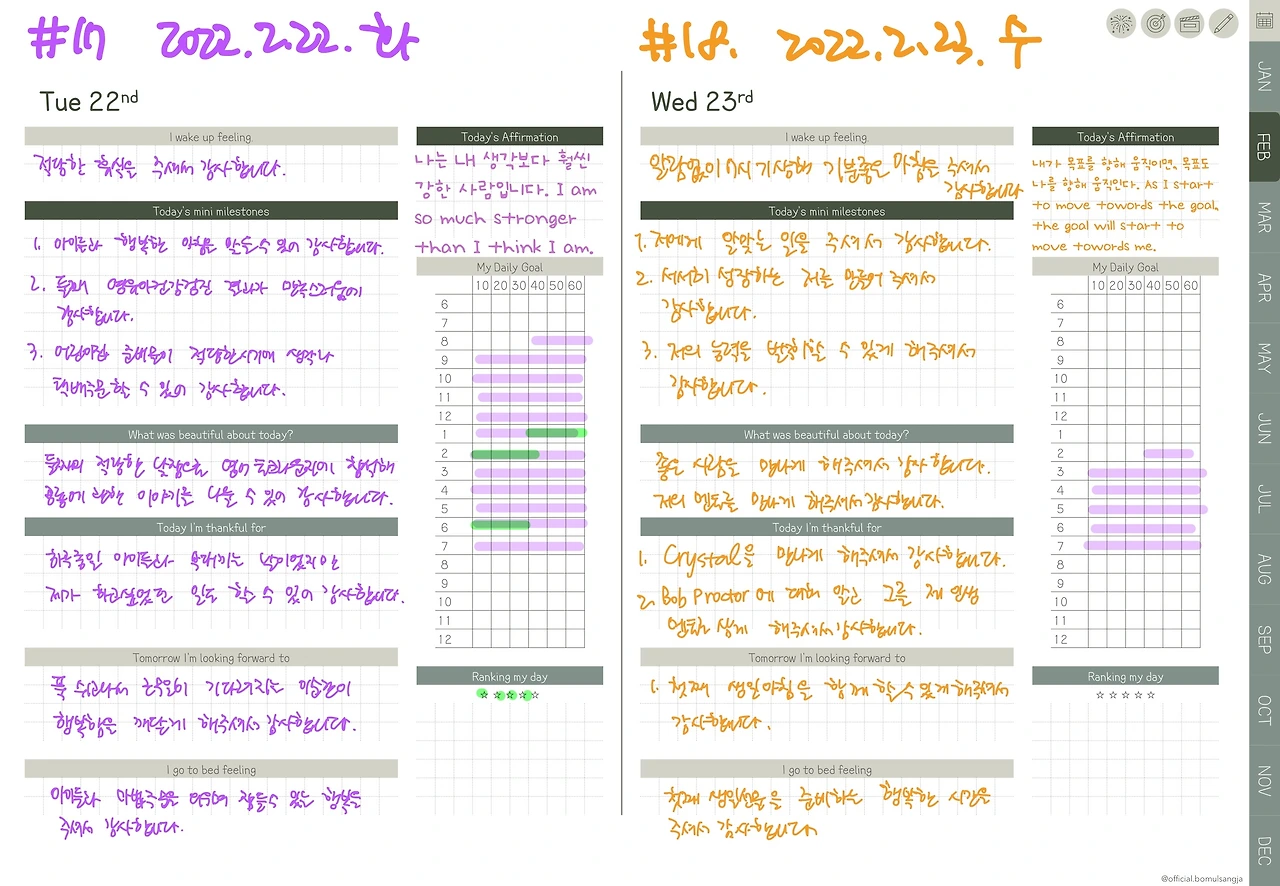 #17 2022.2.22. 화
Tue 22nd
I wake up feeling.
적당한 휴식을 주셔서 감사합니다.
Today's mini milestones
1. 아이들과 행복한 아침을 만들수 있어 감사합니다.
2. 둘째 영유아건강검진 결과가 만족스러움에
감사합니다.
3. 어린이집 준비물이 적당한시기에 생각나
택배주문할 수 있어 감사합니다.
What was beautiful about today?
둘째의 적당한 낮잠으로 영어 참석해
공룡에 대한 이야기를 나눌 수 있어 감사합니다.
Today I'm thankful for
하루종일 아이들과 날이었지만
제가 하고싶었던 일도 할 수 있어 감사합니다.
Tomorrow I'm looking forward to
푹 쉬고나서 기다려지는 이순간이
행복함을 깨닫게 해주셔서 감사합니다.
I go to bed feeling
아이들과 잠들수 있는 행복을
주셔서 감사합니다.
Today's Affirmation
나는 내 생각보다 훨씬
강한 사람입니다. I am
so much stronger
than I think I am.
My Daily Goal
10 20 30 40 50 60
6
7
8
9
10
11
12
1
2
3
4
5
6
7
8
9
10
11
12
Ranking my day
#18. 2022.2.23. 수
Wed 23rd
I wake up feeling.
알람없이 7시 기상해 기분좋은 아침을 주셔서
감사합니다
Today's mini milestones
1. 저에게 알맞는 일을 주셔서 감사합니다.
2. 서서히 성장하는 저를 만들어 주셔서
감사합니다.
3. 저의 능력을 발휘할 수 있게 해주셔서
감사합니다.
What was beautiful about today?
좋은 사람을 만나게 해주셔서 감사합니다.
저의 멘토를 만나게 해주셔서 감사합니다.
Today I'm thankful for
1. Crystal을 만나게 해주셔서 감사합니다.
2. Bob Proctor에 대해 알고 그를 제 인생
멘토로 삼게 해주셔서 감사합니다.
Tomorrow I'm looking forward to
1. 첫째 생일아침을 함께 할 수 있게 해주셔서
감사합니다.
I go to bed feeling
첫째 생일선물을 준비하는 행복한 시간을
주셔서 감사합니다
Today's Affirmation
내가 목표를 향해 움직이면, 목표도
나를 향해 움직인다. As I start
to move towards the goal,
the goal will start to
move towards me.
My Daily Goal
10 20 30 40 50 60
6
7
8
9
10
11
12
1
2
3
4
5
6
7
8
9
10
11
12
Ranking my day
JAN
FEB
MAR
APR
MAY
JUN
JUL
AUG
SEP
OCT
NOV
DEC
@official.bomulsangja